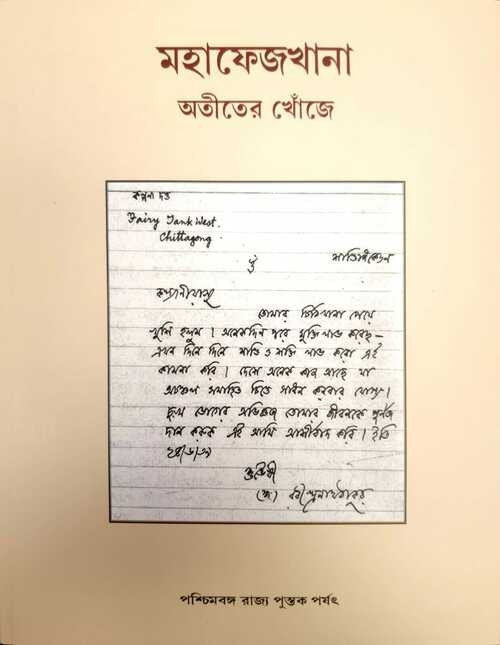 মহাফেজখানা
অতীতের খোঁজে
কল্পনা দত্ত
Fairy Tank West.
Chittagong
ওঁ
শান্তিনিকেতন
কল্যাণীয়াসু
তোমার চিঠিখানা পেয়ে
খুসি হলুম। অনেকদিন পরে মুক্তি লাভ করেছ—
এখন দিনে দিনে শান্তি ও শক্তি লাভ করো এই
কামনা করি। দেশে অনেক কাজ আছে যা
অচঞ্চল সমাহিত চিত্তে সাধন করবার যোগ্য।
দুঃখ ভোগের অভিজ্ঞতা তোমার জীবনকে পূর্ণতা
দান করুক এই আমি আশীর্বাদ করি। ইতি
শুভৈষী
(স্বাঃ) রবীন্দ্রনাথ ঠাকুর
পশ্চিমবঙ্গ রাজ্য পুস্তক পর্ষৎ